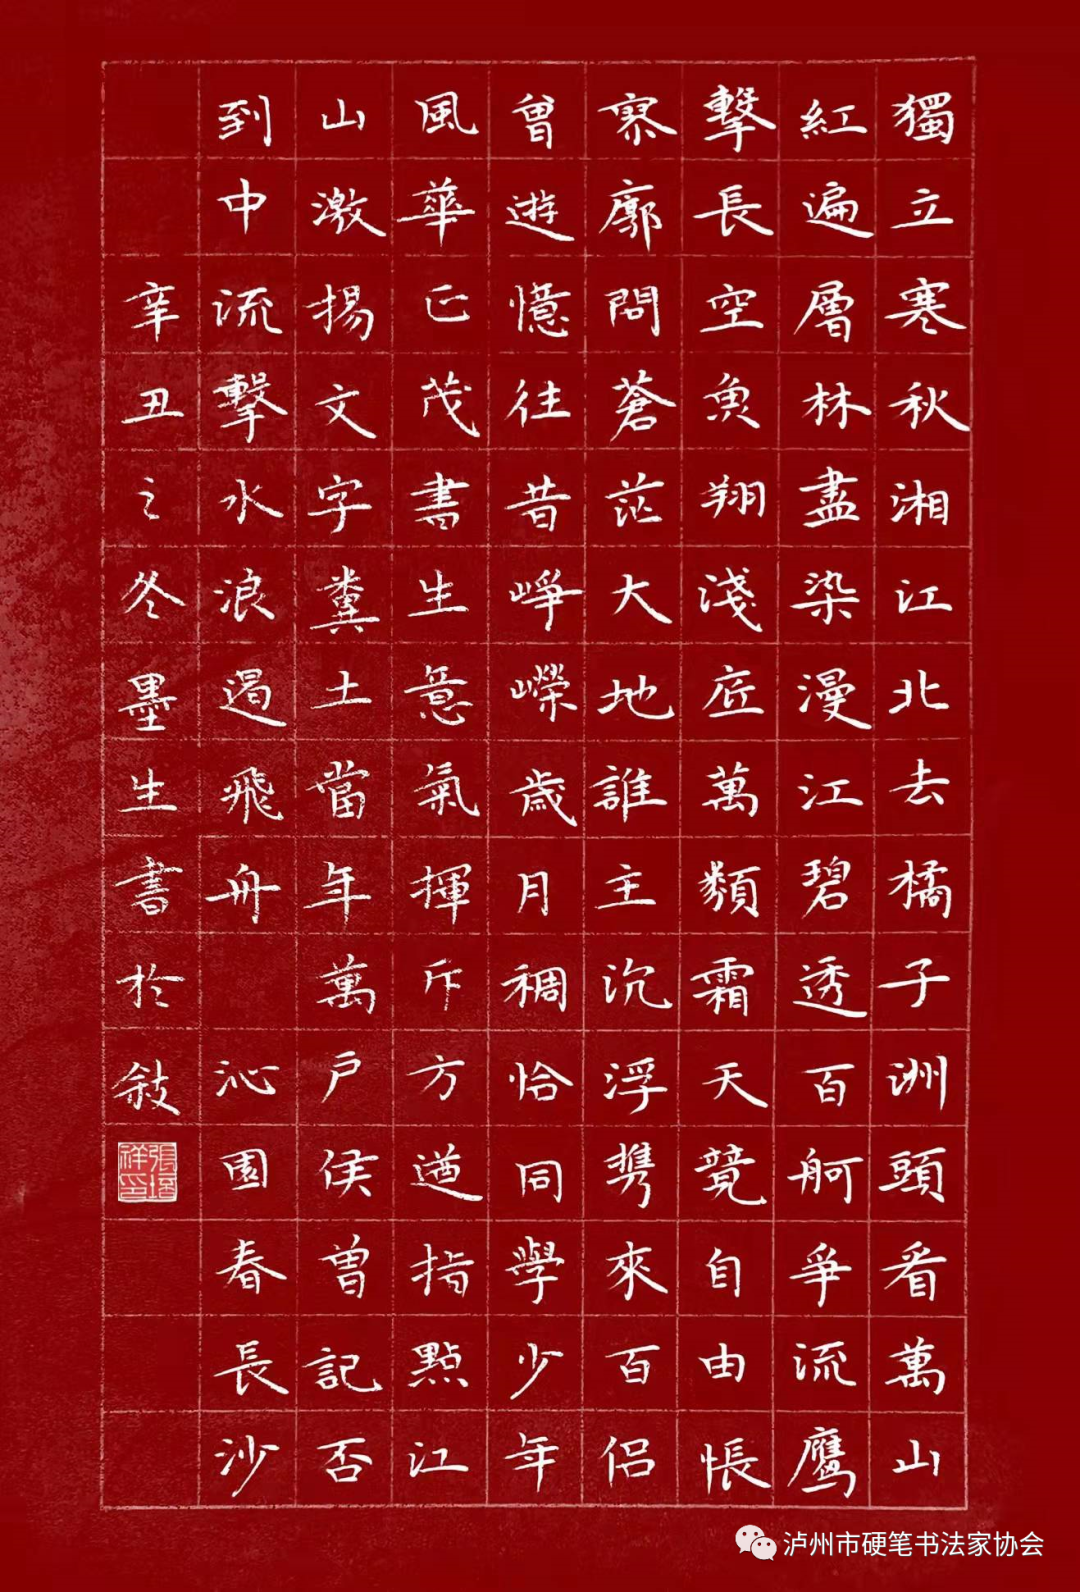 獨立寒秋湘江北去橘子洲頭看萬山
紅遍層林盡染漫江碧透百舸爭流鷹
擊長空魚翔淺底萬類霜天竟自由悵
寥廓問蒼茫大地誰主沉浮攜來百侶
曾遊憶往昔崢嶸歲月稠恰同學少年
風華正茂書生意氣揮斥方遒指點江
山激揚文字糞土當年萬戶侯曾記否
到中流擊水浪遏飛舟 沁園春長沙
辛丑之冬墨生書於敍
泸州市硬笔书法家协会